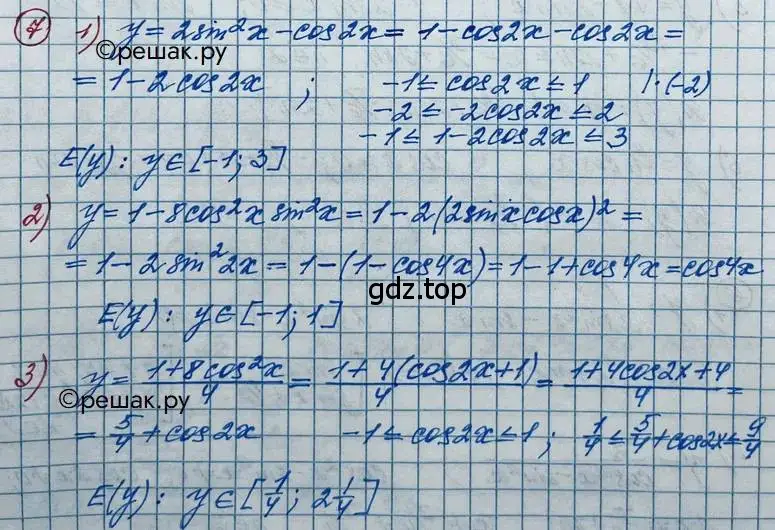 7 1) y = 2sin²x - cos2x = 1 - cos2x - cos2x =
©решак.ру
= 1 - 2cos2x ; -1 ≤ cos2x ≤ 1 |·(-2)
-2 ≤ -2cos2x ≤ 2
-1 ≤ 1 - 2cos2x ≤ 3
E(y): y ∈ [-1; 3]
2) y = 1 - 8cos²x sin²x = 1 - 2(2sinxcosx)² =
= 1 - 2sin²2x = 1 - (1 - cos4x) = 1 - 1 + cos4x = cos4x
gdz.top
E(y): y ∈ [-1; 1]
3) y = (1+8cos²x)/4 = (1+4(cos2x+1))/4 = (1+4cos2x+4)/4 =
©решак.ру
= 5/4 + cos2x -1 ≤ cos2x ≤ 1 ; 1/4 ≤ 5/4 + cos2x ≤ 9/4
E(y): y ∈ [1/4; 2 1/4]